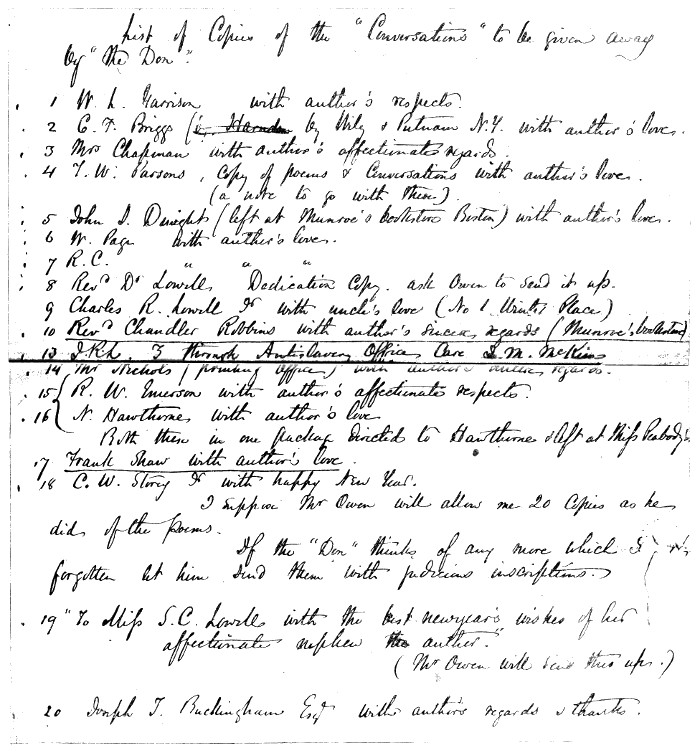 List of Copies of the "Conversations" to be given away
by "the Don".
1 W. L. Garrison with author's respects.
2 C. F. Briggs ( by Wily & Putnam N.Y. with author's love.
3 Mrs Chapman with author's affectionate regards
4 T. W. Parsons, Copy of poems & Conversations with author's love.
(a note to go with them).
5 John S. Dwight (left at Munroe's bookstore Boston) with author's love.
6 W. Page with author's love.
7 R.C. " " "
8 Revd Dr Lowell Dedication Copy. ask Owen to send it up.
9 Charles R. Lowell Jr with uncle's love (No 1 Winter Place)
10 Revd Chandler Robbins with author's sincere regards (Munroe's bookstore)
13 J.R.L. 3 through Antislavery Office Care J. M. McKim
14 Mr Nichols (printing office) with author's sincere regards.
15 R. W. Emerson with author's affectionate respects.
16 N. Hawthorne with author's love
Both these in one package directed to Hawthorne & left at Miss Peabody's
17 Frank Shaw with author's love.
18 C. W. Storey Jr with happy New Year.
I suppose Mr Owen will allow me 20 Copies as he
did of the poems.
If the "Don" thinks of any more which I
forgotten let him send them with judicious inscriptions.
19 "To Miss S. C. Lowell with the best newyear's wishes of her
affectionate nephew the author."
(Mr Owen will send this up.)
20 Joseph T. Buckingham Esqr with author's regards & thanks.